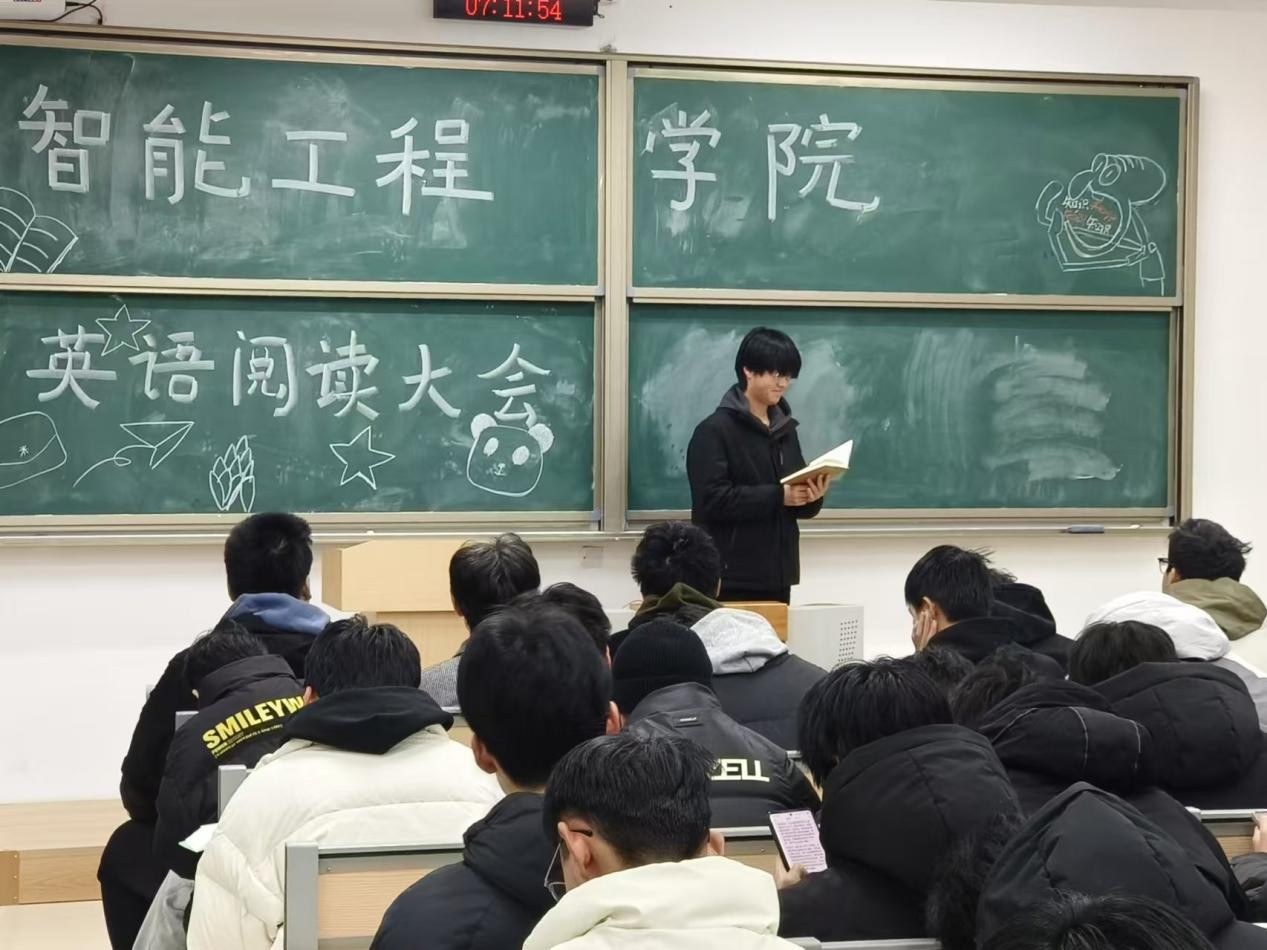 07:11:54
智能工程学院
知识
知识
英语阅读大会
SMILEYW
ELL